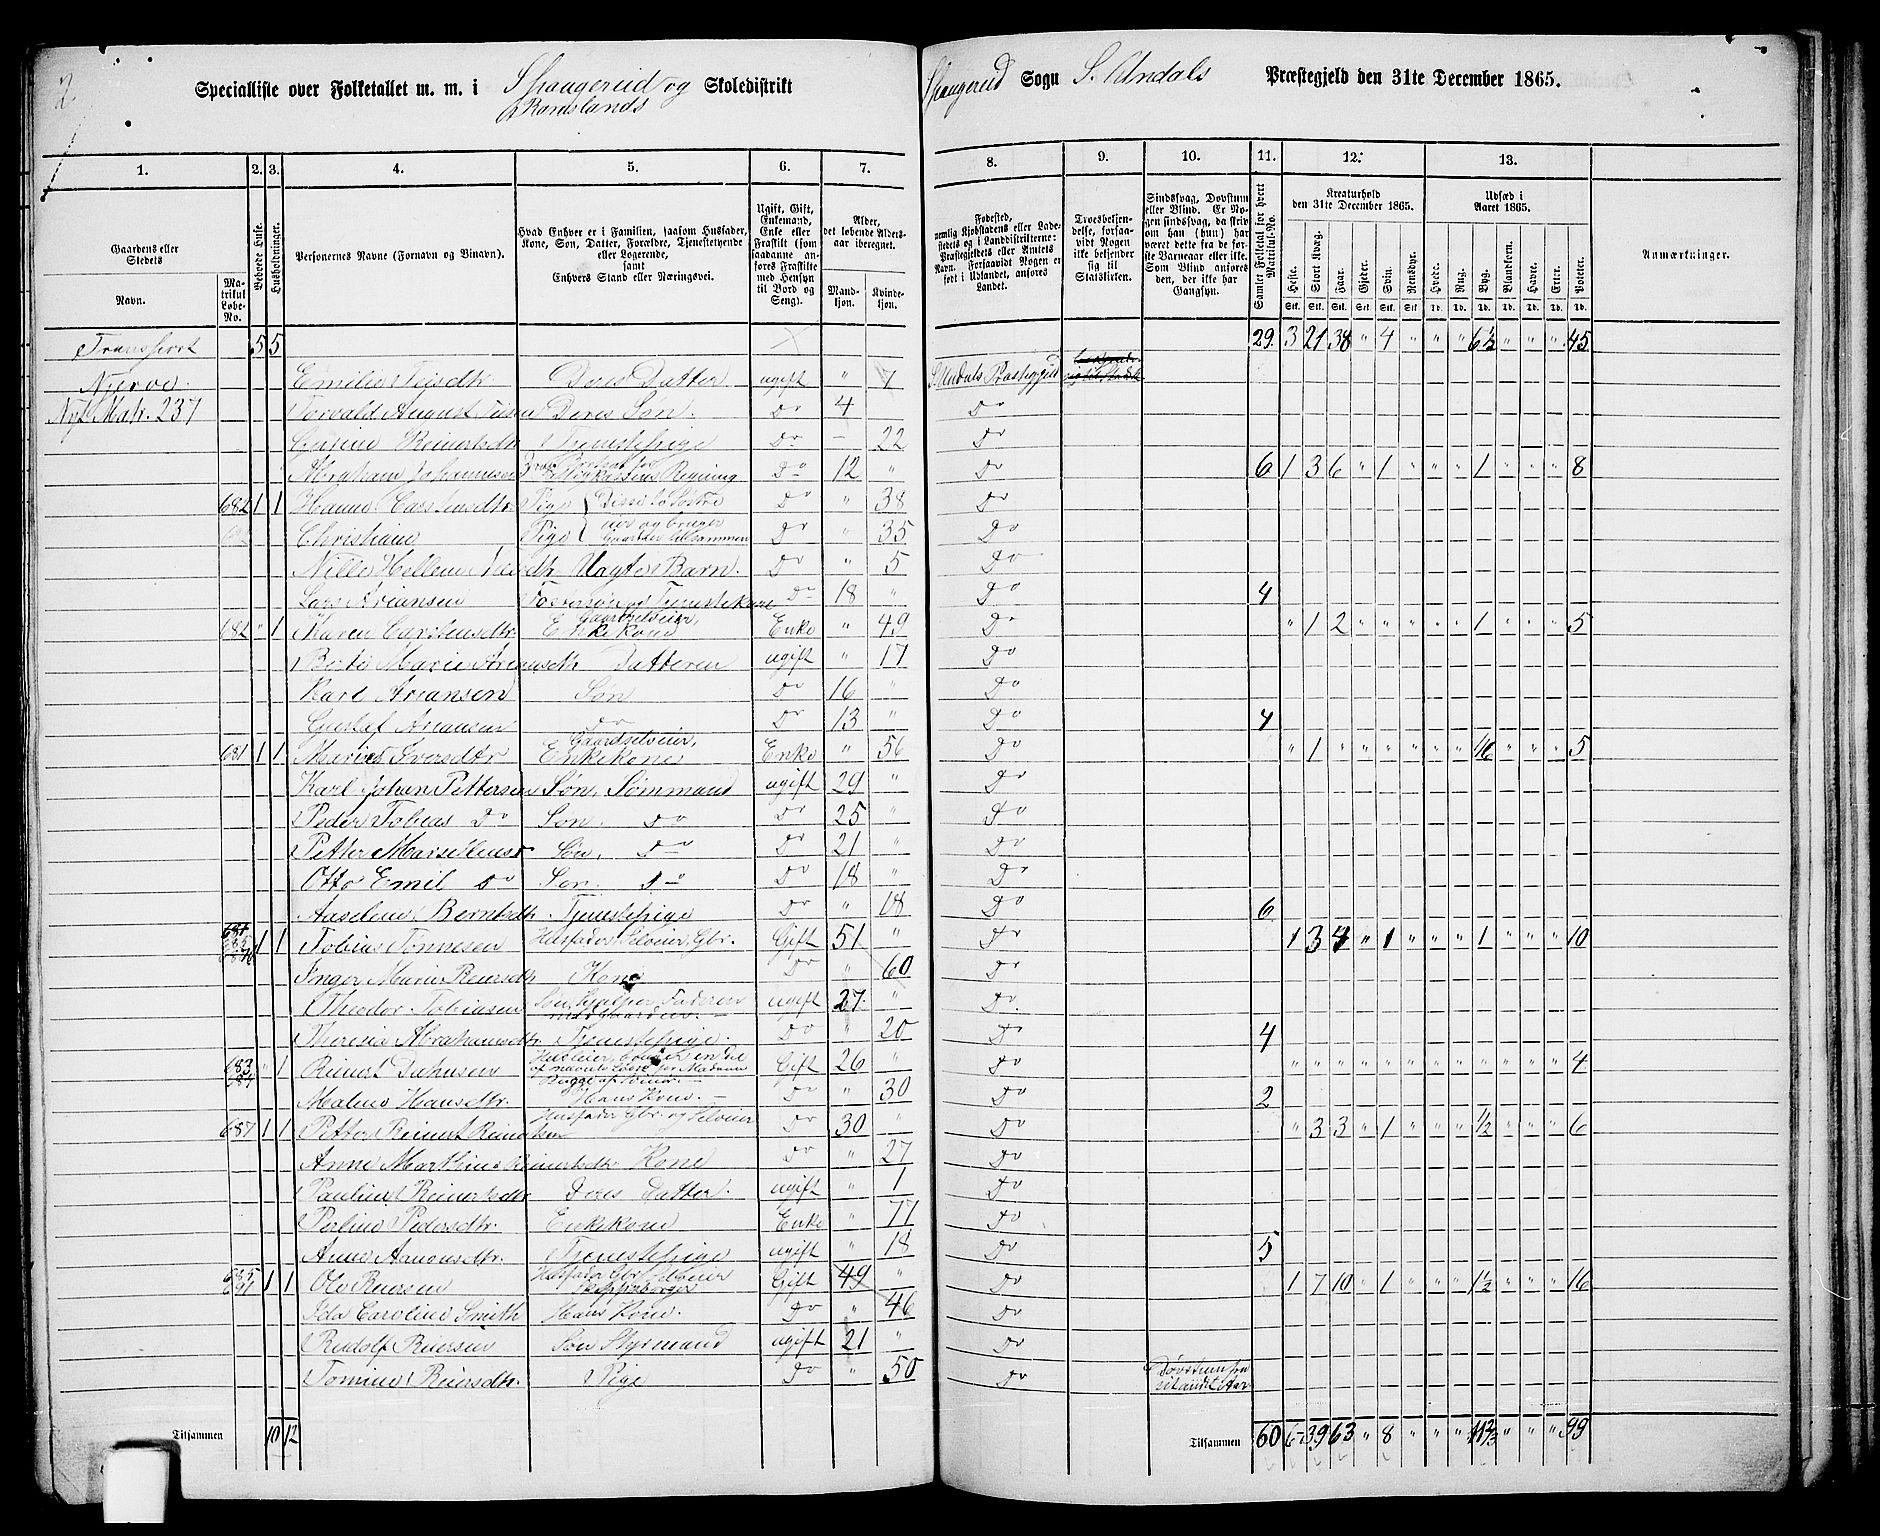 2
Specialliste over Folketallet m. m. i Spangereid og Skoledistrikt
Bandslands
Spangereid Sogn S. Undals Præstegjeld den 31te December 1865.
1. 2. 3. 4. 5. 6. 7. 8. 9. 10. 11. 12. 13.
Gaardens eller Stedets
Navn.
Matrikul Løbe-No.
Beboede Huse.
Husholdninger.
Personernes Navne (Fornavn og Binavn).
Hvad Enhver er i Familien, saasom Husfader, Kone, Søn, Datter, Forældre, Tjenestetyende eller Logerende, samt Enhvers Stand eller Næringsvei.
Ugift, Gift, Enkemand, Enke eller Fraskilt (saadanne anføres Fraskilte med Hensyn til Bord og Seng).
Alder, det løbende Alders-aar iberegnet.
Mandkjøn. Kvindekjøn.
Fødested, nemlig Kjøbstadens eller Ladestedets og i Landdistrikterne: Præstegjeldets eller Amtets Navn. Forsaavidt Nogen er født i Udlandet, anføres Landet.
Troesbekjendelse, forsaavidt Nogen ikke bekjender sig til Statskirken.
Sindssvag, Døvstum eller Blind. Er Nogen sindssvag, da skriv om han (hun) har været dette fra de første Barneaar eller ikke. Som Blind anføres den, der ikke har Gangsyn.
Samlet Folketal for hvert Matrikul-No.
Kreaturhold den 31te December 1865.
Heste. Stort Kvæg. Faar. Gjeder. Svin. Rensdyr.
Udsæd i Aaret 1865.
Hvede. Rug. Byg. Blandkorn. Havre. Erter. Poteter.
Anmærkninger.
Transport 5 5 29 3 21 38 " 4 " " " 6½ " " " 45
Njerve. Emilie Deres Datter ugift " 7 S. Undals Præstegjeld
Nyt Matr. 237 Torvald August Deres Søn. Do 4 Do
Reinertsdtr Tjenestepige Do - 22 Do
Abraham Do 12 " Do 6 1 3 6 " 1 " " " 1 " " " 8
682 1 1 Hanne Carstensdtr Pige Disse to Søstre Do " 38 Do
Christiane Pige eier og bruger Gaarden tilsammen Do " 35 Do
Nille Hellene Barn. Do " 5 Do
Lars Ariansen Do 18 " Do 4
682 " 1 Maren Carstensdtr. Gaardselveier, Enkekone Enke " 49 Do " 1 2 " " " " " 1 " " " 5
Berte Marie Datteren ugift " 17 Do
Karl Ariansen Søn Do 16 " Do
Gustaf Ariansen Do Do 13 " Do 4
681 1 1 Iversdtr Gaardselveier, Enkekone Enke " 56 Do " 1 " " " " " " " " " 5
Karl Johan Pettersen Søn, Sømmand ugift 29 " Do
Peder Tobias Do Søn. Do Do 25 " Do
Petter Søn. Do Do 21 " Do
Otto Emil Do Søn. Do Do 18 " Do
Berntsdtr Tjenestepige Do " 18 Do 6
681 1 1 Tobias Tønnesen Husfader Selveier, Gbr. Gift 51 " Do 1 3 4 " 1 " " " 1 " " " 10
Inger Marie Reiersdtr Kone Do " 60 Do
Theodor Tobiasen Søn, hjelper Faderen med Gaarden. ugift 27 " Do
Theresia Abrahamsdtr Tjenestepige. Do " 20 Do 4
683 " 1 Reinert Gift 26 " Do " " " " " " " " " " " " 4
Malene Hansdtr. Hans Kone. Do " 30 Do 2
687 1 1 Petter Reinert Husfader Gbr. og Selveier Do 30 " Do " 3 3 " 1 " " " ½ " " " 6
Anne Marthine Reinertsdtr Kone Do " 27 Do
Pauline Reinertsdtr Deres Datter. ugift " 1 Do
Pedersdtr. Enkekone Enke " 77 Do
Anne Tjenestepige ugift " 18 Do 5
1 1 Ole Reiersen Husfader Gbr. Selveier Gift 49 " Do 1 7 10 " 1 " " " 1½ " " " 16
Ida Caroline Smith Hans Kone. Do " 46 Do
Rudolf Reiersen Søn Styrmand ugift 21 " Do
Tomine Reiersdtr. Pige Do " 50 Do Døvstum fra
Tilsammen 10 12
Tilsammen 60 6 39 63 " 8 " " " " " " 99